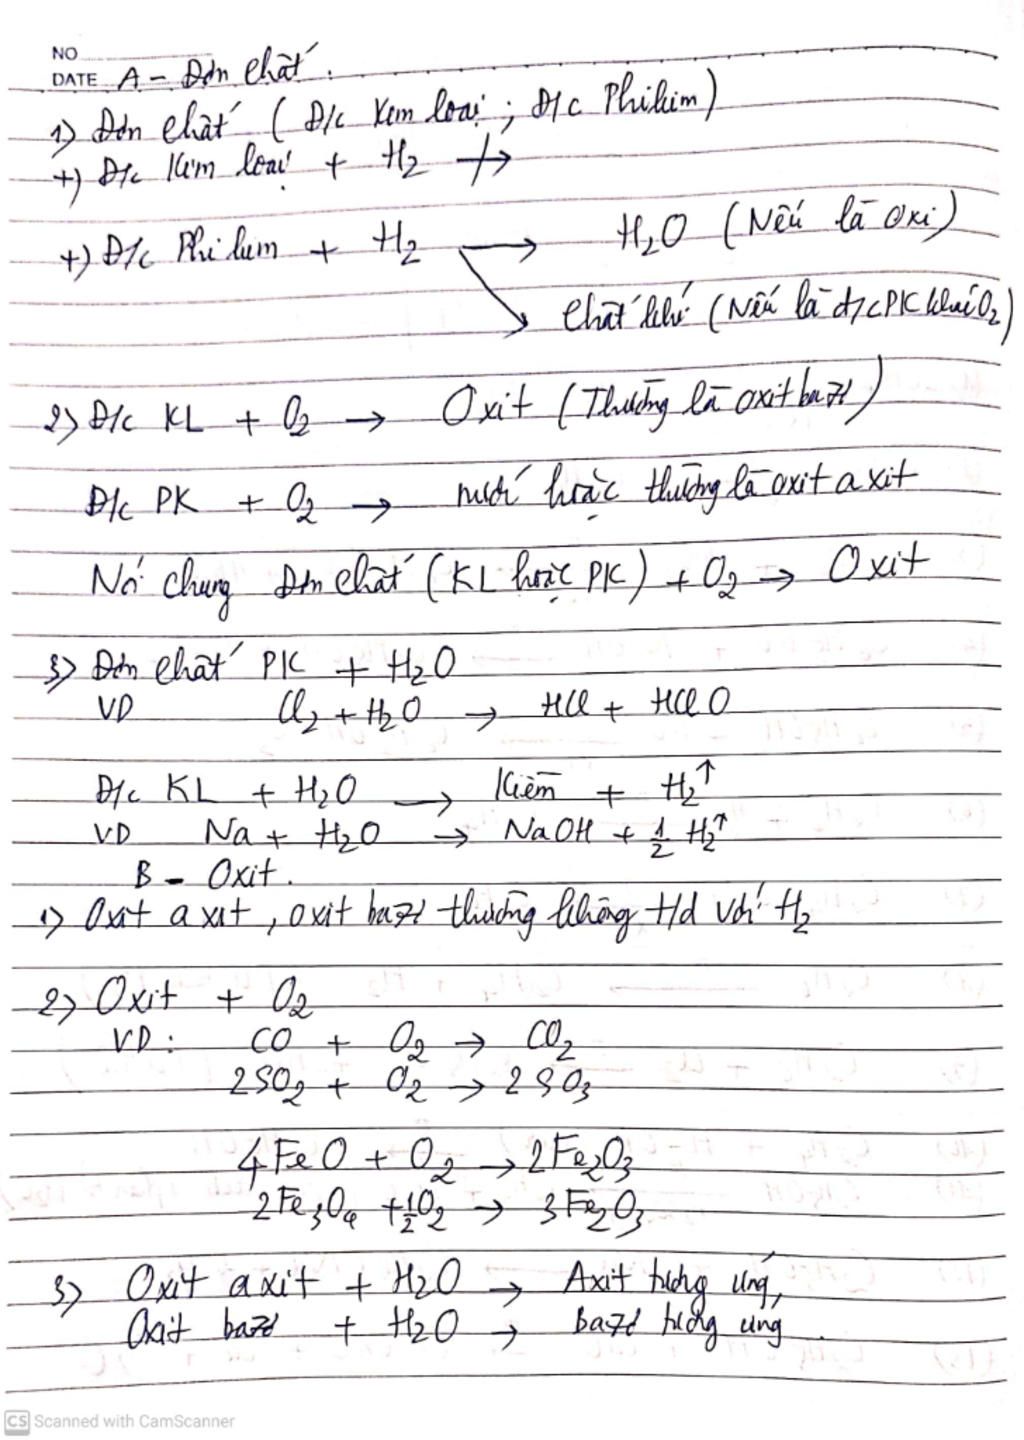 NO
DATE A - Đơn chất.
1) Đơn chất (Đ/c Kim loại; Đ/c Phi kim)
+) Đ/c Kim loại + H2 ↛
+) Đ/c Phi kim + H2 → H2O (Nếu là Oxi)
↘ Chất khí (Nếu là đ/c PK khác O2)
2) Đ/c KL + O2 → Oxit (Thường là oxit bazơ)
Đ/c PK + O2 → nước hoặc thường là oxit axit
Nói chung Đơn chất (KL hoặc PK) + O2 → Oxit
3) Đơn chất PK + H2O
VD Cl2 + H2O → HCl + HClO
Đ/c KL + H2O → Kiềm + H2↑
VD Na + H2O → NaOH + 1/2 H2↑
B - Oxit.
1) Oxit axit, oxit bazơ thường không td với H2
2) Oxit + O2
VD: CO + O2 → CO2
2SO2 + O2 → 2SO3
4FeO + O2 → 2Fe2O3
2Fe3O4 + 1/2O2 → 3Fe2O3
3) Oxit axit + H2O → Axit tương ứng,
Oxit bazơ + H2O → bazơ tương ứng.
CS Scanned with CamScanner